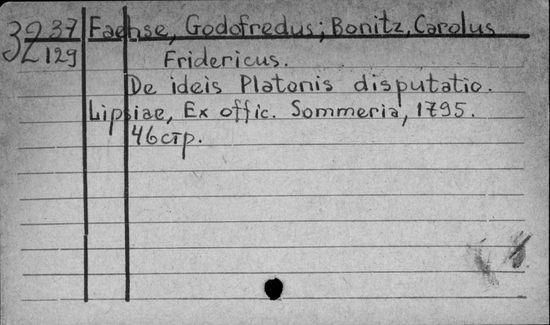 32 37 Faehse, Godofredus; Bonitz, Carolus
129 Fridericus.
De ideis Platonis disputatio.
Lipsiae, Ex offic. Sommeria, 1795.
46стр.